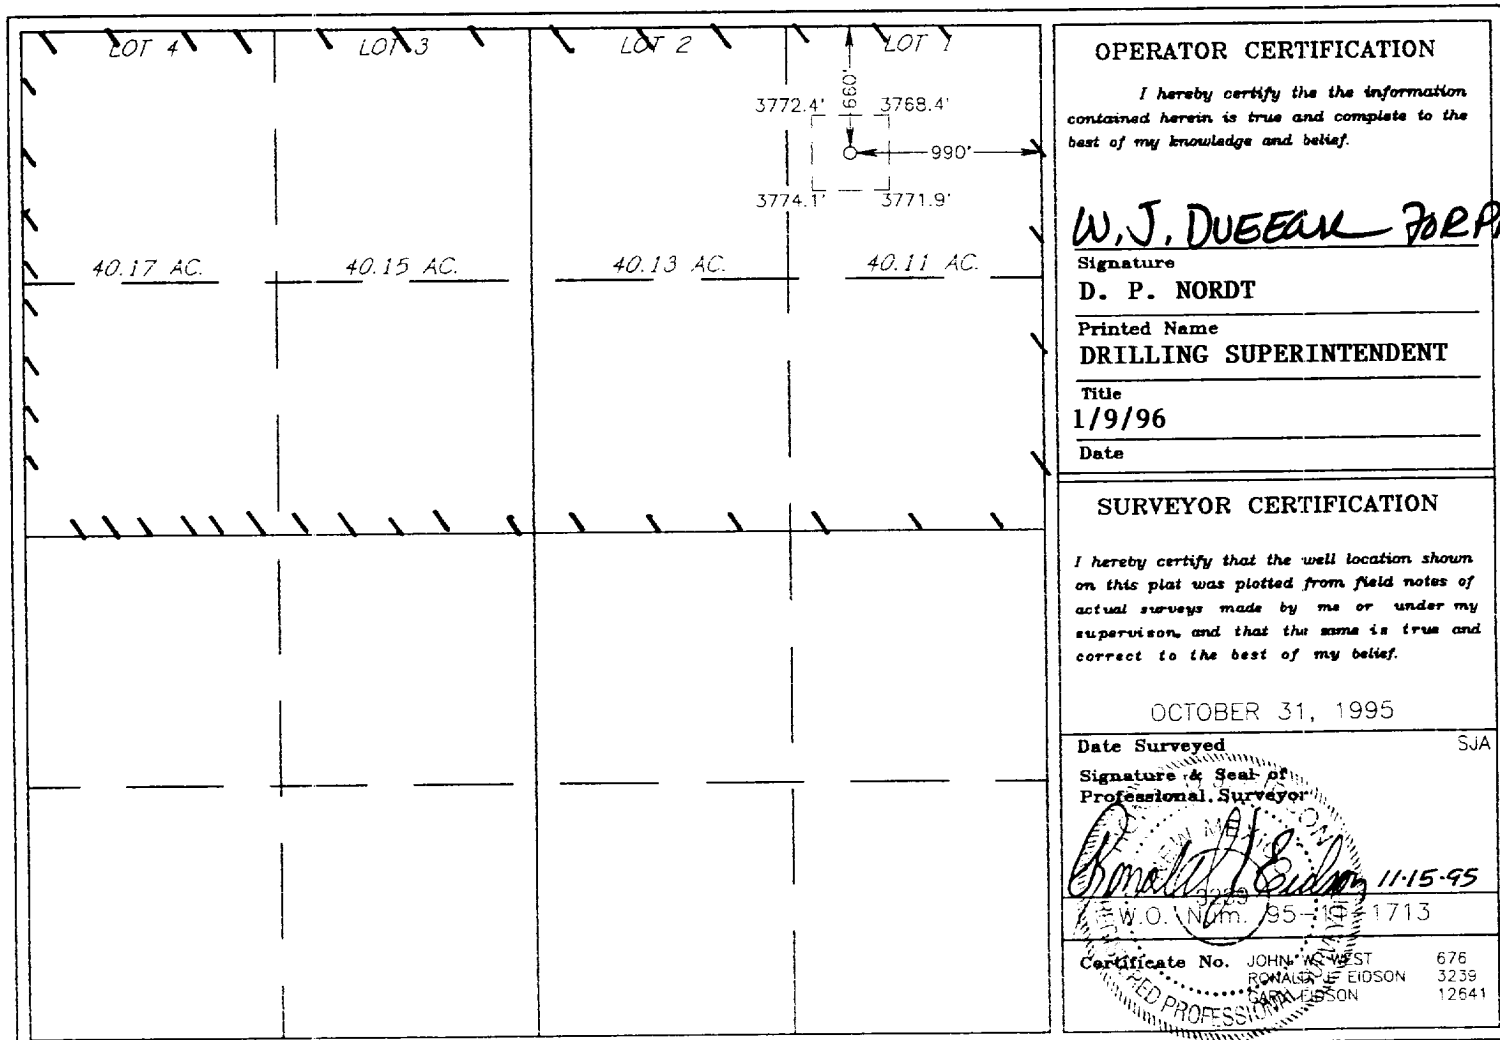 LOT 4 LOT 3 LOT 2 LOT 1
660'
3772.4' 3768.4'
990'
3774.1' 3771.9'
40.17 AC. 40.15 AC. 40.13 AC. 40.11 AC.
OPERATOR CERTIFICATION
I hereby certify the the information
contained herein is true and complete to the
best of my knowledge and belief.
W. J.
Signature
D. P. NORDT
Printed Name
DRILLING SUPERINTENDENT
Title
1/9/96
Date
SURVEYOR CERTIFICATION
I hereby certify that the well location shown
on this plat was plotted from field notes of
actual surveys made by me or under my
supervison, and that the same is true and
correct to the best of my belief.
OCTOBER 31, 1995
Date Surveyed SJA
Signature & Seal of
Professional Surveyor
NEW MEXICO
3239
PROFESSIONAL
Ronald J Eidson 11-15-95
W.O. Num. 95-11-1713
Certificate No. JOHN W. WEST 676
RONALD J. EIDSON 3239
GARY EIDSON 12641